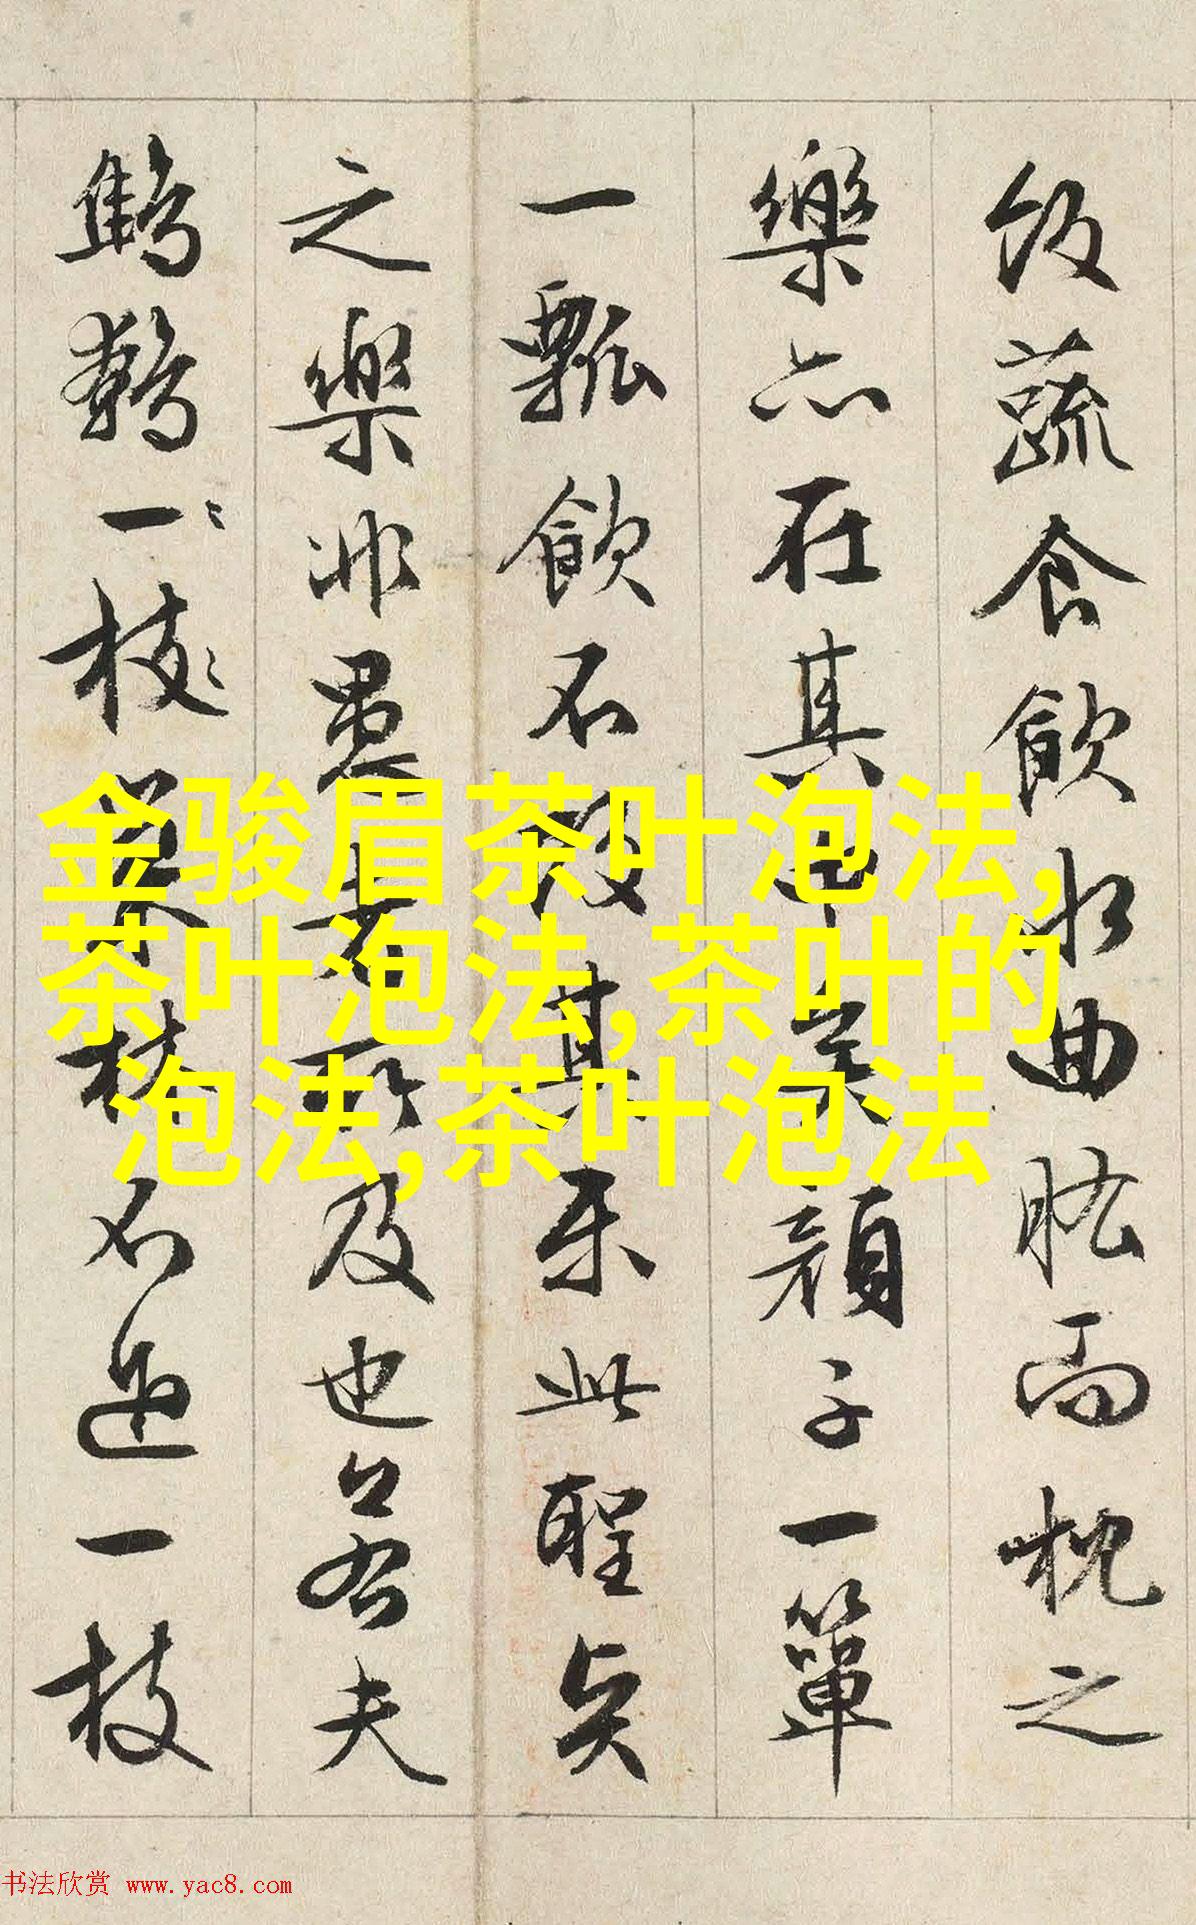 飯蔬食飲水曲肱而枕之
樂亦在其中矣顏子一簞
一瓢飲不改其樂此聖賢
之樂非愚者所及也若夫
鷦鷯一枝巢林不過一枝
金骏眉茶叶泡法,
茶叶泡法,茶叶的
泡法,茶叶泡法
书法欣赏 www.yac8.com